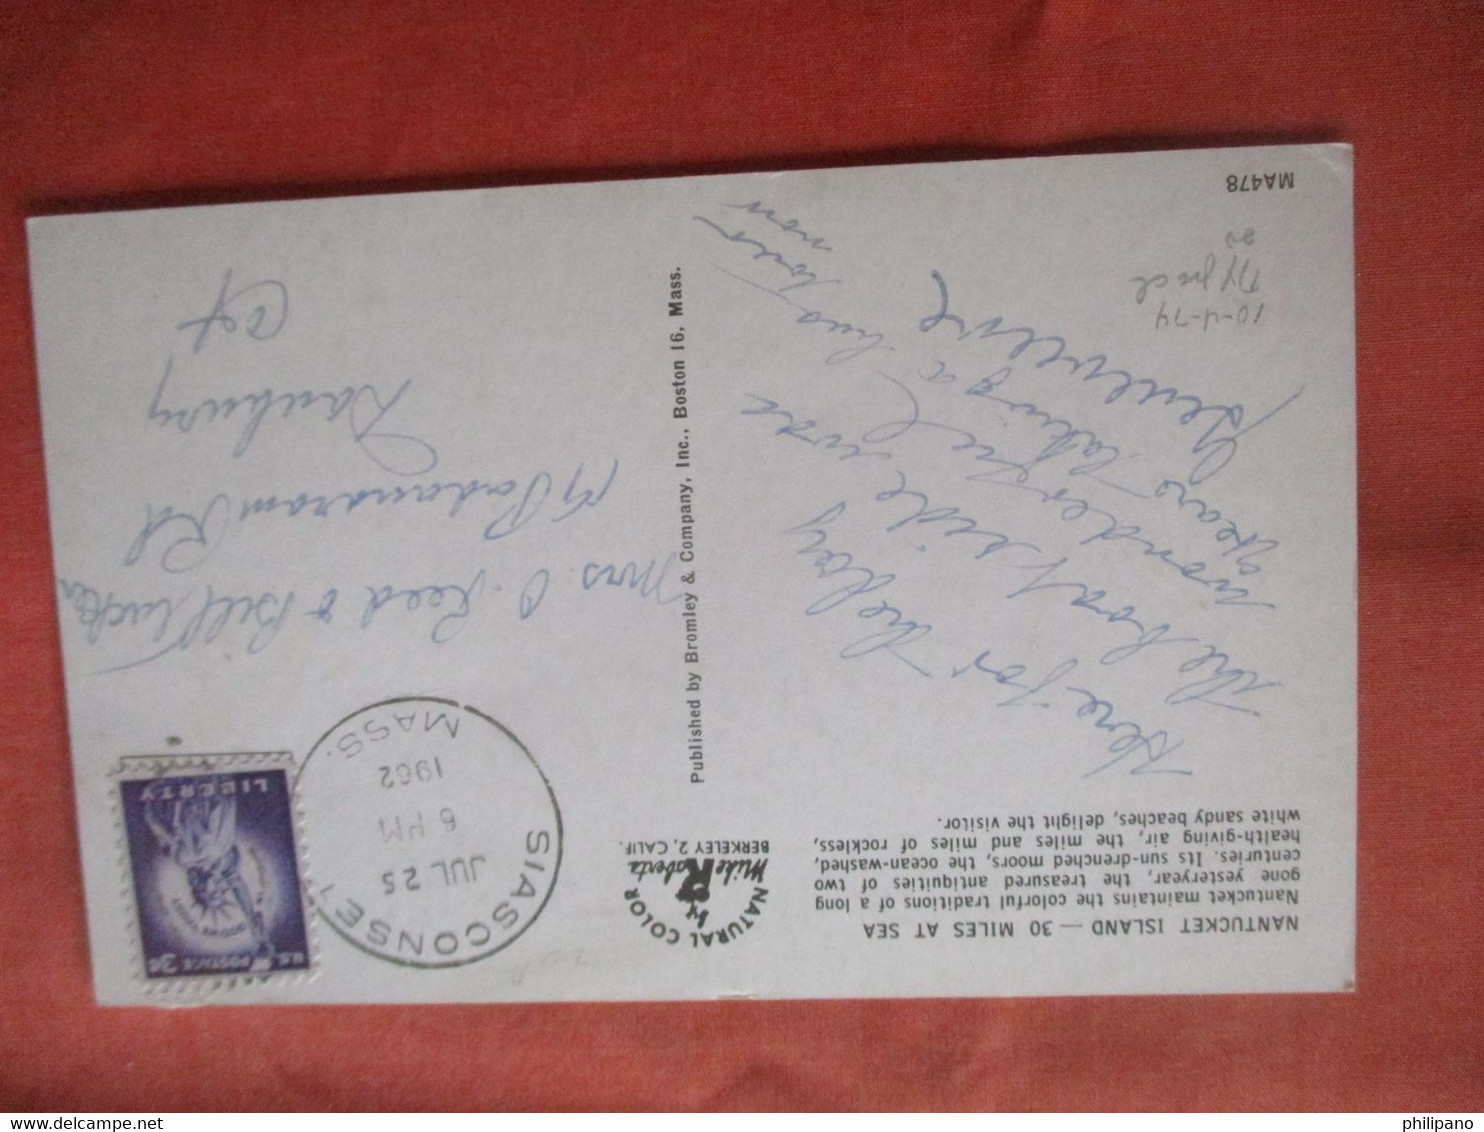 NANTUCKET ISLAND — 30 MILES AT SEA
Nantucket maintains the colorful traditions of a long
gone yesteryear, the treasured antiquities of two
centuries. Its sun-drenched moors, the ocean-washed,
health-giving air, the miles and miles of rockless,
white sandy beaches, delight the visitor.
Here for the day
the boat ride was
wonderful
years taking a bus
now
Genevieve
10-4-74
MA478
NATURAL COLOR
by
Mike Roberts
BERKELEY 2, CALIF.
Published by Bromley & Company, Inc., Boston 16, Mass.
SIASCONSET
JUL 25
6 PM
1962
MASS.
U.S. POSTAGE 3¢
IN GOD WE TRUST
LIBERTY
Mrs. O. Reed & Bill Tucker
Padanaram Rd
Danbury
Ct
www.delcampe.net
philipano